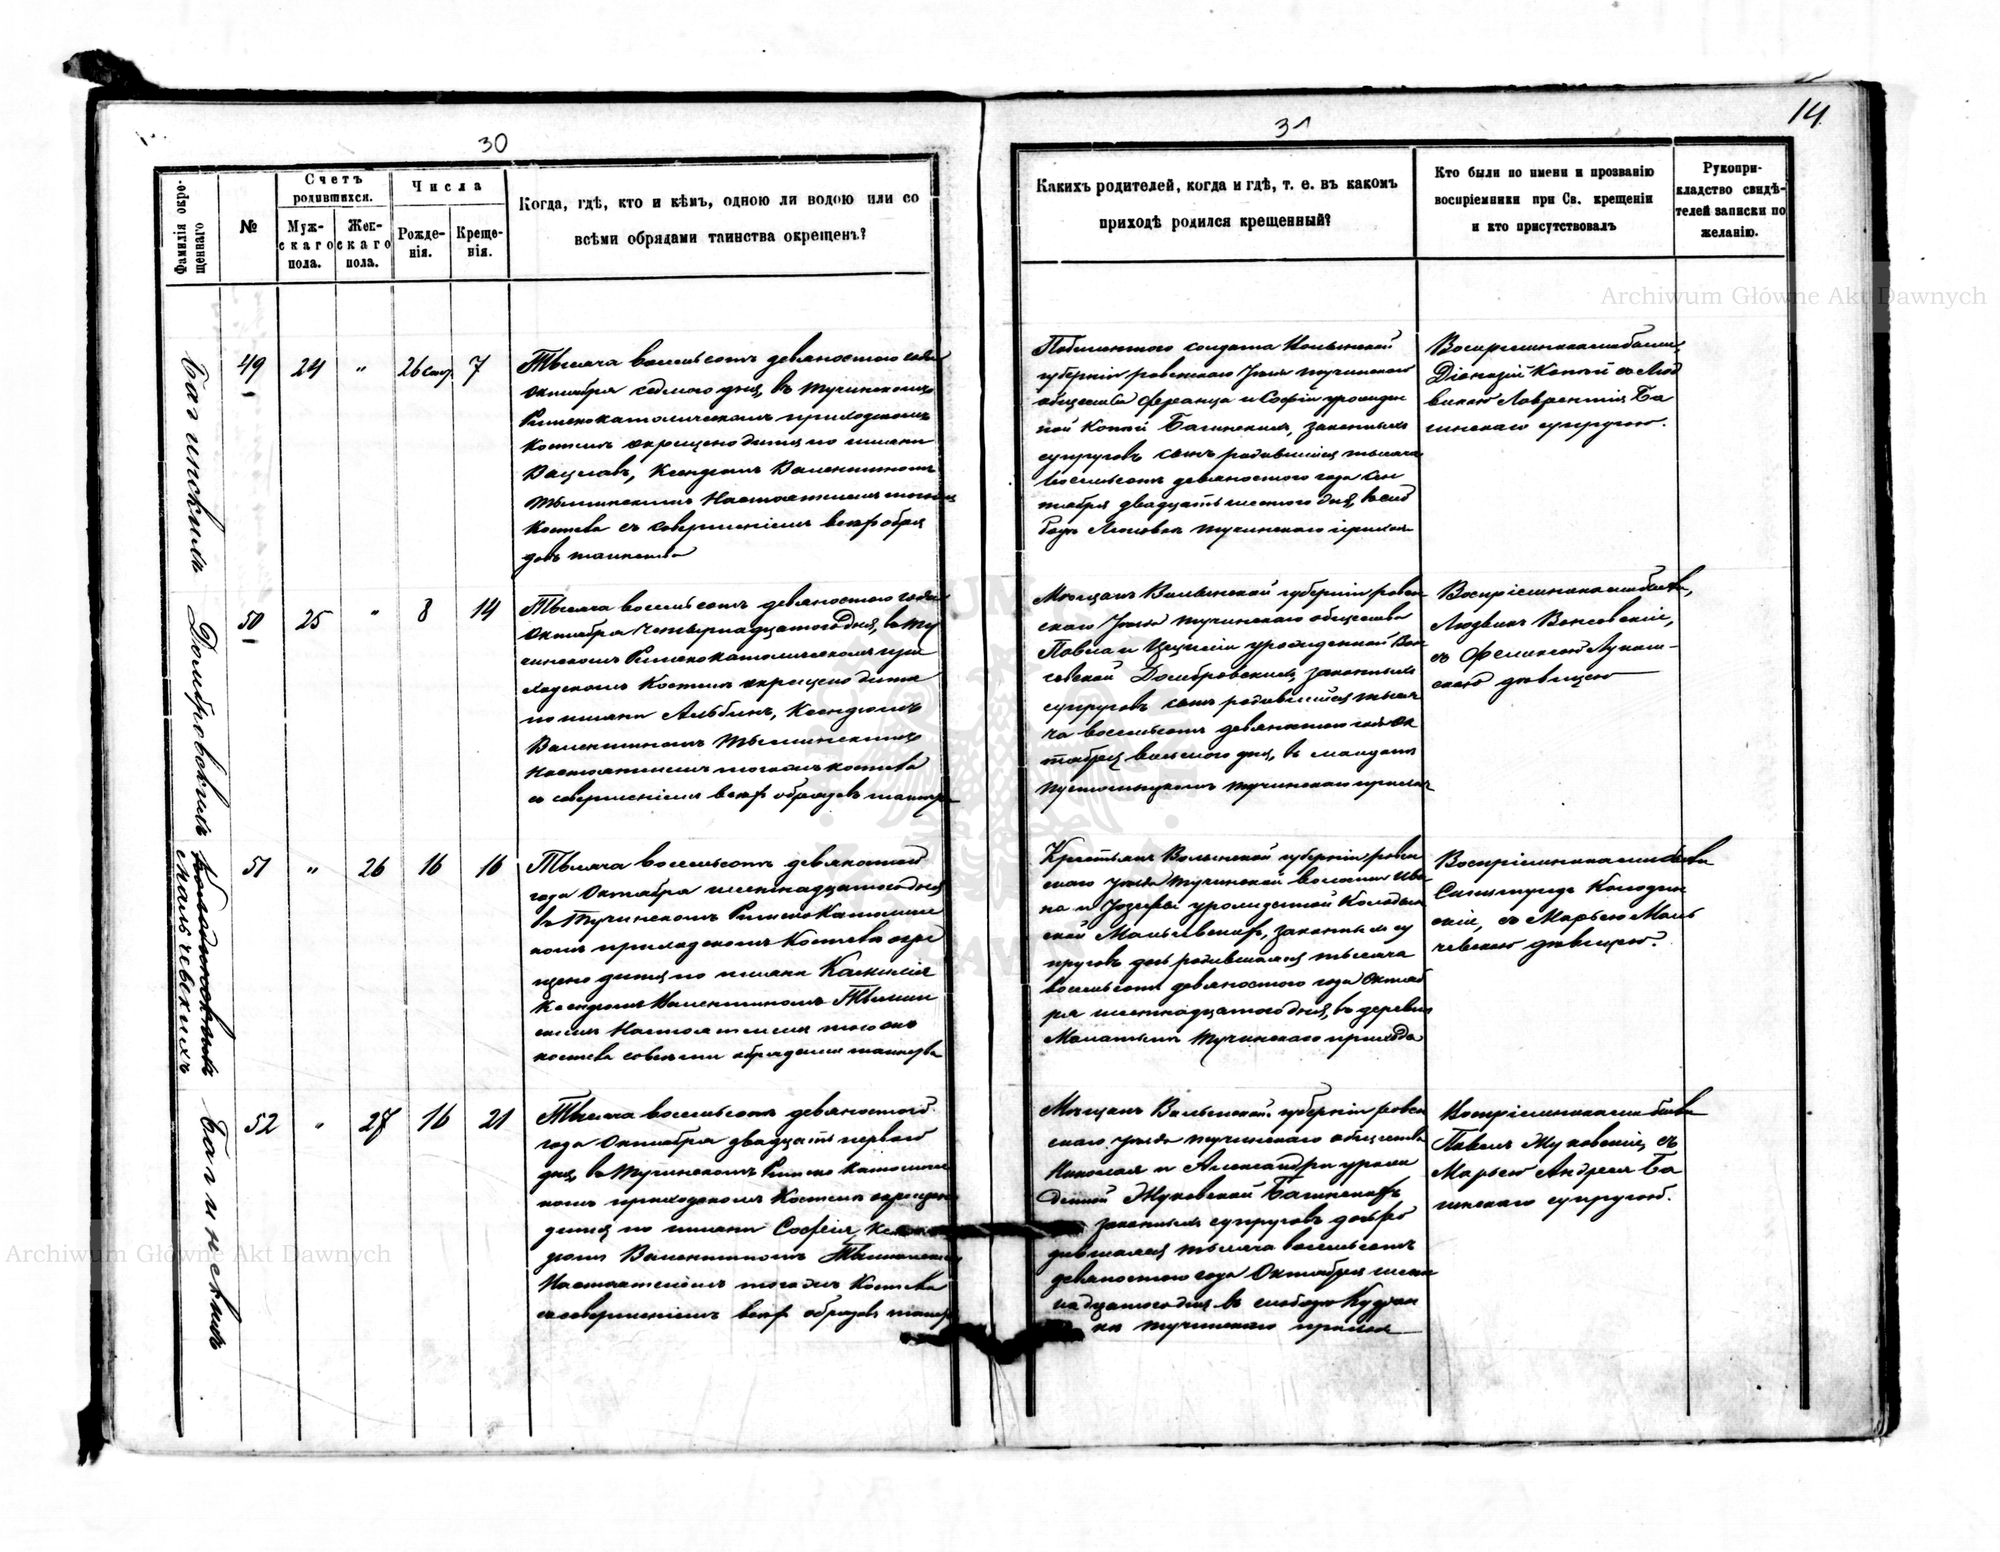 14
30
31
Фамилія окре-
щеннаго
№
Счетъ
родившихся.
Муж-
скаго
пола.
Жен-
скаго
пола.
Числа
Рожде-
нія.
Креще-
нія.
Когда, гдѣ, кто и кѣмъ, одною ли водою или со
всѣми обрядами таинства окрещенъ?
Какихъ родителей, когда и гдѣ, т. е. въ какомъ
приходѣ родился крещенный?
Кто были по имени и прозванію
воспріемники при Св. крещеніи
и кто присутствовалъ
Рукопри-
кладство свидѣ-
телей записки по
желанію.
Багинскимъ
49
24
"
26 сент.
7
Тысяча восемьсотъ девяностого года
Октября седмого дня, въ Тучинскомъ
Римскокатолическомъ приходскомъ
Костелѣ окрещено дитя по имени
Вацлавъ, Ксендзомъ Валентиномъ
Настоятелемъ того
Костела съ совершеніемъ всѣхъ обря
довъ таинства
солдата Волынской
губерніи ровенскаго уѣзда тучинскаго
общества Феранца и Софіи урожден
ной Копій Багинскихъ, законныхъ
супруговъ сынъ родившійся тысяча
восемьсотъ девяностого года Сен
тября двадцать шестого дня, въ слоб
тучинскаго прихода
Воспріемниками были,
Діонизій Копій съ Люд
викою Лаврентія Ба
гинскаго супругою.
Домбровскимъ
50
25
"
8
14
Тысяча восемьсотъ девяностого года
Октября четырнадцатого дня, въ Ту
чинскомъ Римскокатолическомъ при
ходскомъ Костелѣ окрещено дитя
по имени Альбинъ, Ксендзомъ
Валентиномъ
Настоятелемъ того Костела
съ совершеніемъ всѣхъ обрядовъ таинства
Мѣщанъ Волынской губерніи ровен
скаго уѣзда тучинскаго общества
Павла и Цециліи урожденной Вон
севской Домбровскихъ, законныхъ
супруговъ сынъ родившійся тыся
ча восемьсотъ девяностого года Ок
тября восьмого дня, въ
тучинскаго прихода
Воспріемниками были,
Людвикъ Вонсовскій,
съ Феликсою Лукаш-
скою дѣвицею
Колодинскимъ
Мальчевскихъ
51
"
26
16
16
Тысяча восемьсотъ девяностого
года Октября шестнадцатого дня
въ Тучинскомъ Римскокатоличес
комъ приходскомъ Костелѣ окре
щено дитя по имени
Ксендзомъ Валентиномъ
Настоятелемъ того
костела со всѣми обрядами таинства
Крестьянъ Волынской губерніи ровен
скаго уѣзда Тучинской волости Ива
на и Юзефы урожденной Колодин
ской Мальчевскихъ, законныхъ су
пруговъ дочь родившаяся тысяча
восемьсотъ девяностого года Октяб
ря шестнадцатого дня, въ деревни
Тучинскаго прихода
Воспріемниками были
Сигизмундъ Колодин
скій, съ Марьею Маль
чевскою дѣвицею.
Багинскимъ
52
"
27
16
21
Тысяча восемьсотъ девяностого
года Октября двадцать первого
дня, въ Тучинскомъ Римско католичес
комъ приходскомъ Костелѣ окрещено
дитя по имени Софія, Ксен
дзомъ Валентиномъ
Настоятелемъ того Костела
съ совершеніемъ всѣхъ обрядовъ таинства
Мѣщанъ Волынской губерніи ровен
скаго уѣзда тучинскаго общества
Николая и Александры урож
денной Жуковской Багинскихъ,
законныхъ супруговъ дочь ро
дившаяся тысяча восемьсотъ
девяностого года Октября шест
надцатого дня въ слободѣ
тучинскаго прихода
Воспріемниками были
Павелъ Жуковскій, съ
Марьею Андрея Ба
гинскаго супругою.
Archiwum Główne Akt Dawnych
Archiwum Główne Akt Dawnych